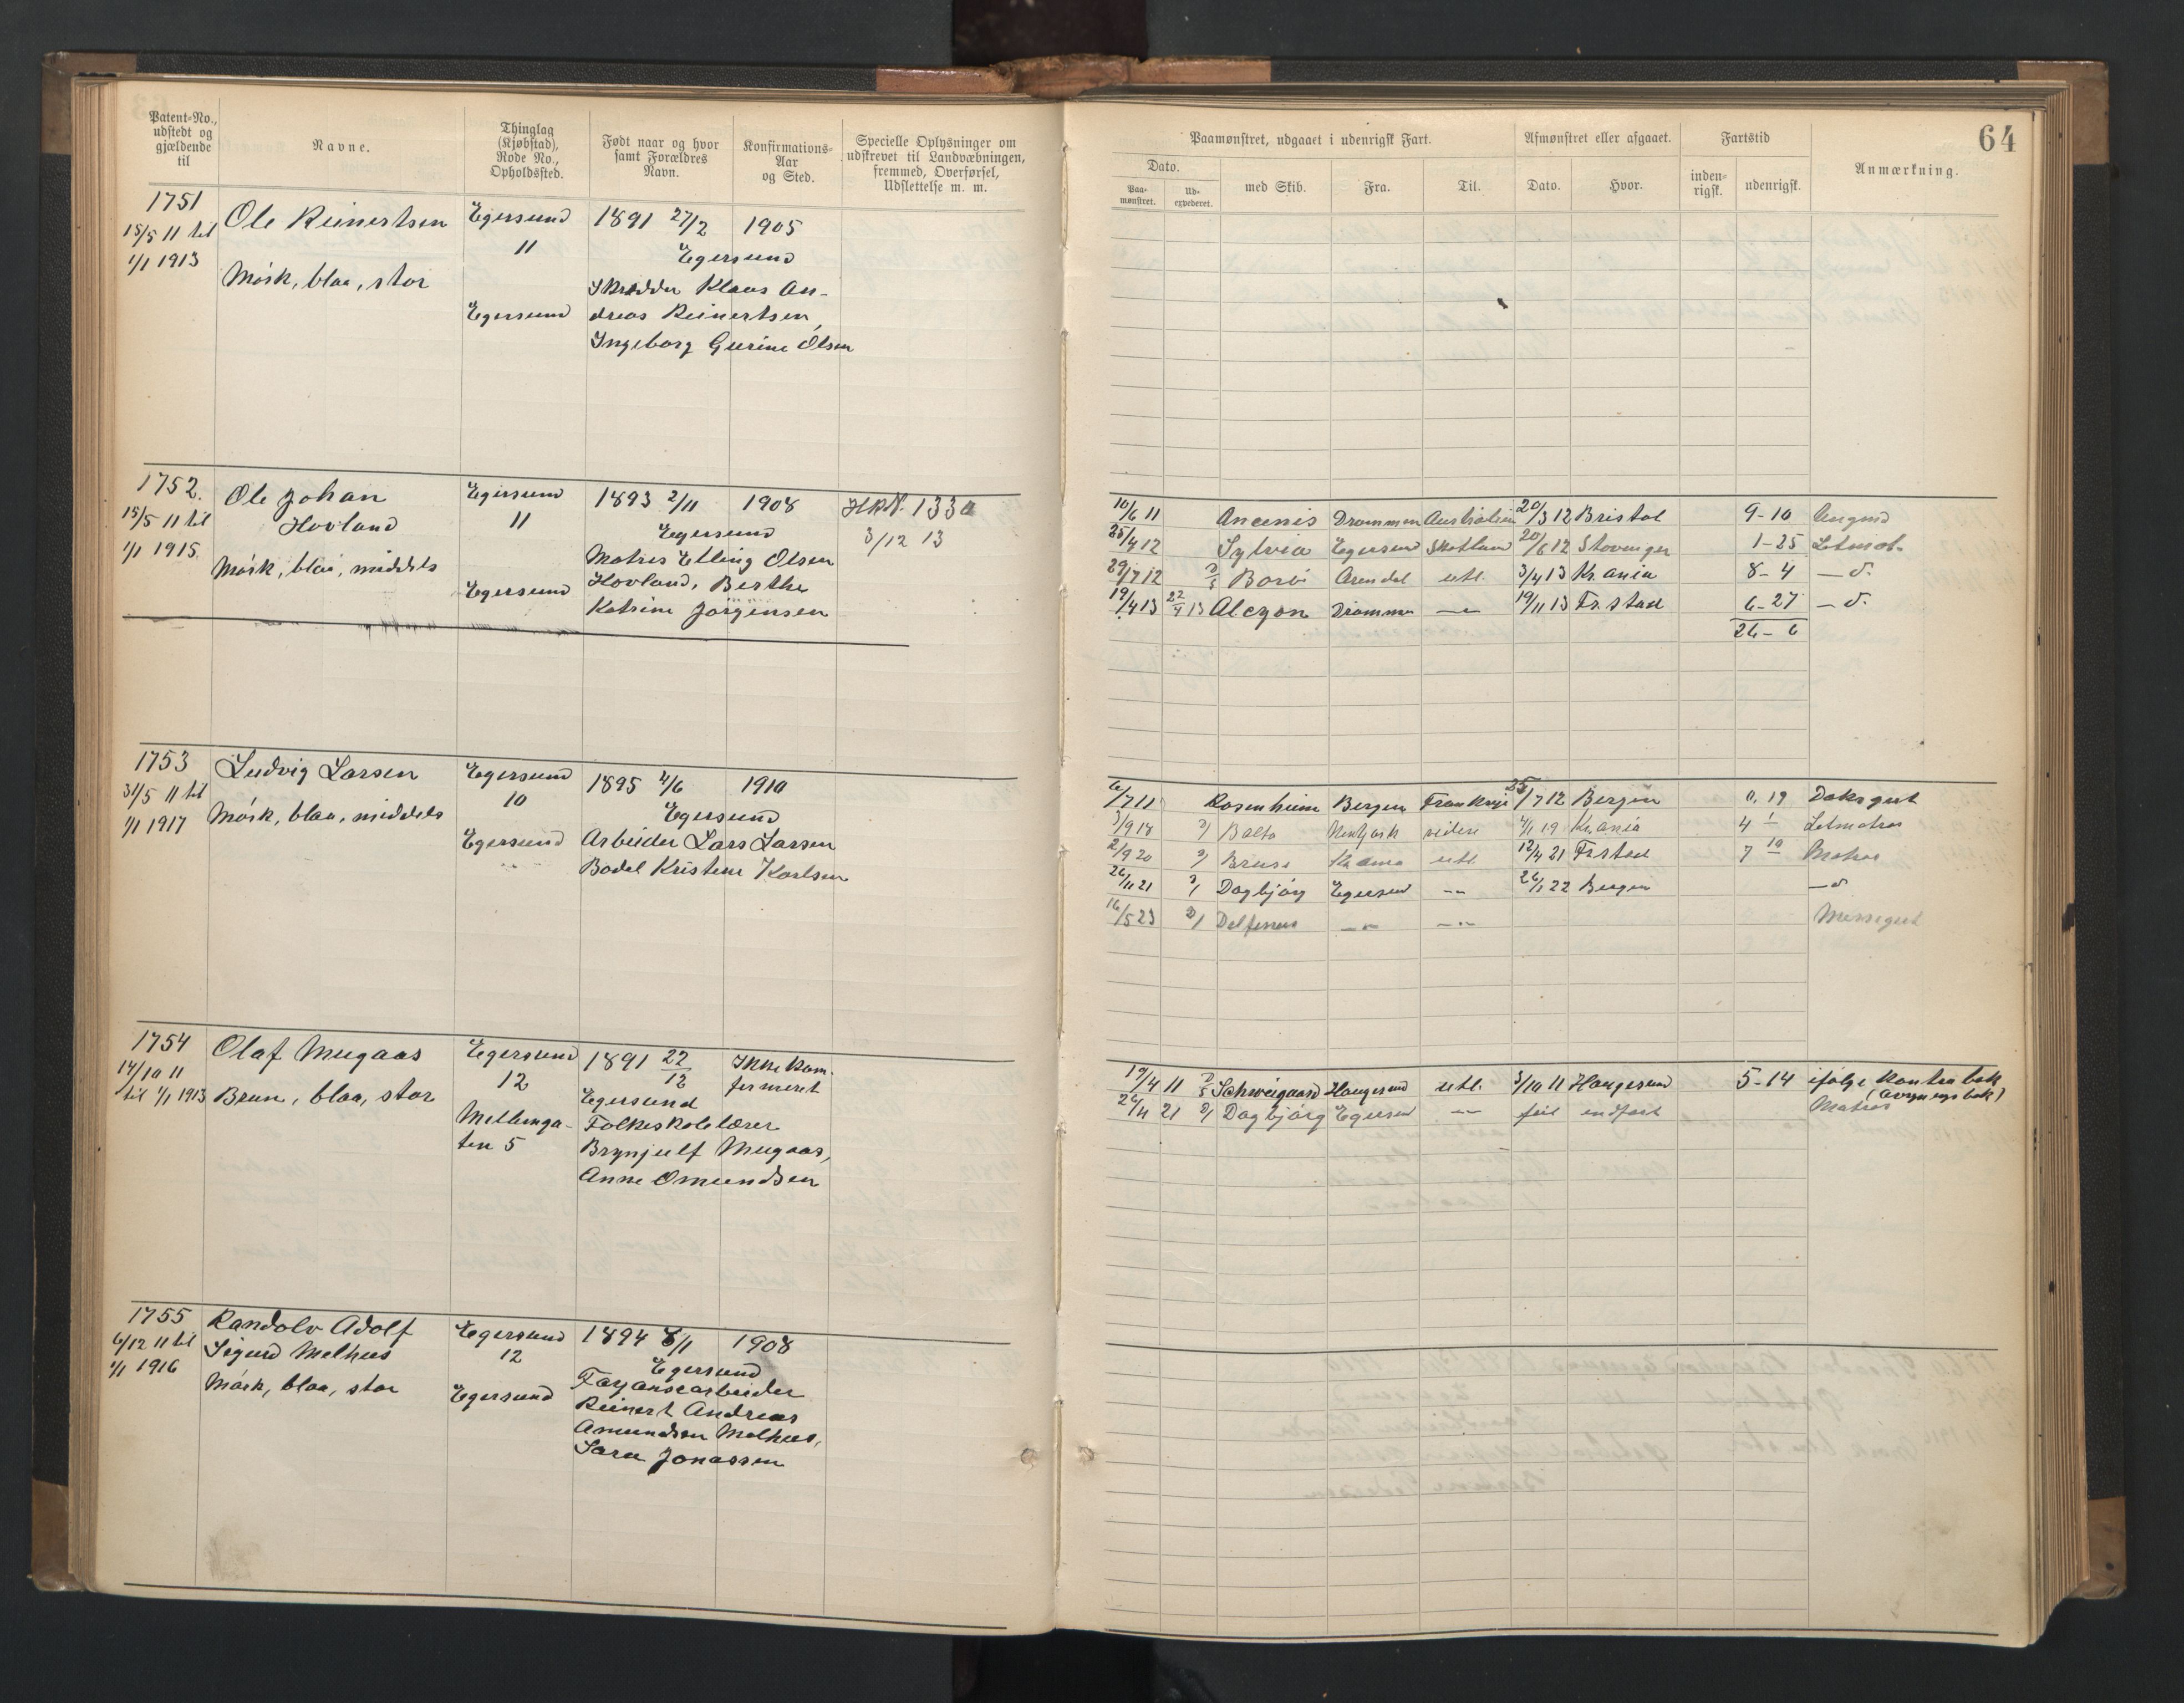 64
Patent-No., udstedt og gjældende til
Navne.
Thinglag (Kjøbstad), Rode No., Opholdssted.
Født naar og hvor samt Forældres Navn.
Konfirmations-Aar og Sted.
Specielle Oplysninger om udskrevet til Landværningen, fremmed, Overførsel, Udslettelse m. m.
Paamønstret, udgaaet i udenrigsk Fart.
Afmønstret eller afgaaet.
Fartstid
Anmærkning.
Dato.
Paa-mønstret.
Ud-expederet.
med Skib.
Fra.
Til.
Dato.
Hvor.
inden-rigsk.
udenrigsk.
1751
15/5 11 til
1/1 1913
Ole Reinertsen
Mørk, blaa, stor
Egersund
11
Egersund
1891 27/2 1905
Egersund
Skrædder Klaus An-
dreas Reinertsen,
Ingeborg Gurine Olsen
1752.
15/5 11 til
1/1 1915.
Ole Johan
Hovland
Mørk, blaa, middels
Egersund
11
Egersund
1893 2/11 1908
Egersund
Matros Elling Olsen
Hovland, Berthe
Katrine Jørgensen
133a
3/12 13
10/6 11 Ancenis Drammen Australien 20/3 12 Bristol 9-10
25/4 12 Sylvia Egersund Skotland 20/6 12 Stavanger 1-25 Letmat.
29/7 12 Arendal utl. 3/4 13 Kr.ania 8-4 —d.
19/4 13 22/4 13 Alcyon Drammen —"— 19/11 13 Fr.stad 6-27 —d.
26-6
1753
31/5 11 til
1/1 1917
Ludvig Larsen
Mørk, blaa, middels
Egersund
10
Egersund
1895 4/6 1910
Egersund
Arbeider Lars Larsen
Bodel Kristene Karlsen
6/7 11 Rosenheim Bergen Frankrige 25/7 12 Bergen 0. 19 Daksgut
3/9 18 Balto Newyork videre 4/1 19 Kr.ania 4 1 Letmatros
2/9 20 Bruse Kr.ania utl. 12/4 21 Fr.stad 7 10 Matros
26/11 21 Dagbjørg Egersund —"— 26/1 22 Bergen —d
16/5 23 Delfinus —"— —"— Messegut
1754
14/10 11
til 1/1 1913
Olaf Mugaas
Brun, blaa, stor
Egersund
12
Mellemga-
ten 5
1891 22/12 Ikke kon-
firmeret
Egersund
Folkeskolelærer
Brynjulf Mugaas,
Anne Omundsen
19/4 11 Schweigaard Haugesund utl. 3/10 11 Haugesund 5-14 ifølge kontrabok
26/11 21 Dagbjørg Egersund —"— feil indført Matros
1755
6/12 11 til
1/1 1916
Randolv Adolf
Sigurd Melhus
Mørk, blaa, stor
Egersund
12
Egersund
1894 8/1 1908
Egersund
Fayansearbeider
Reinert Andreas
Amundsen Melhus,
Sara Jonassen